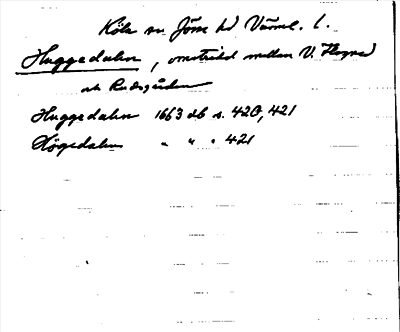 Köla sn Jösse hd Värml. l.
Huggedalen, omstridd mellan V. Hogna
och Rudsgården
Huggedalen 1663 db s. 420, 421
Högedalen " " " 421